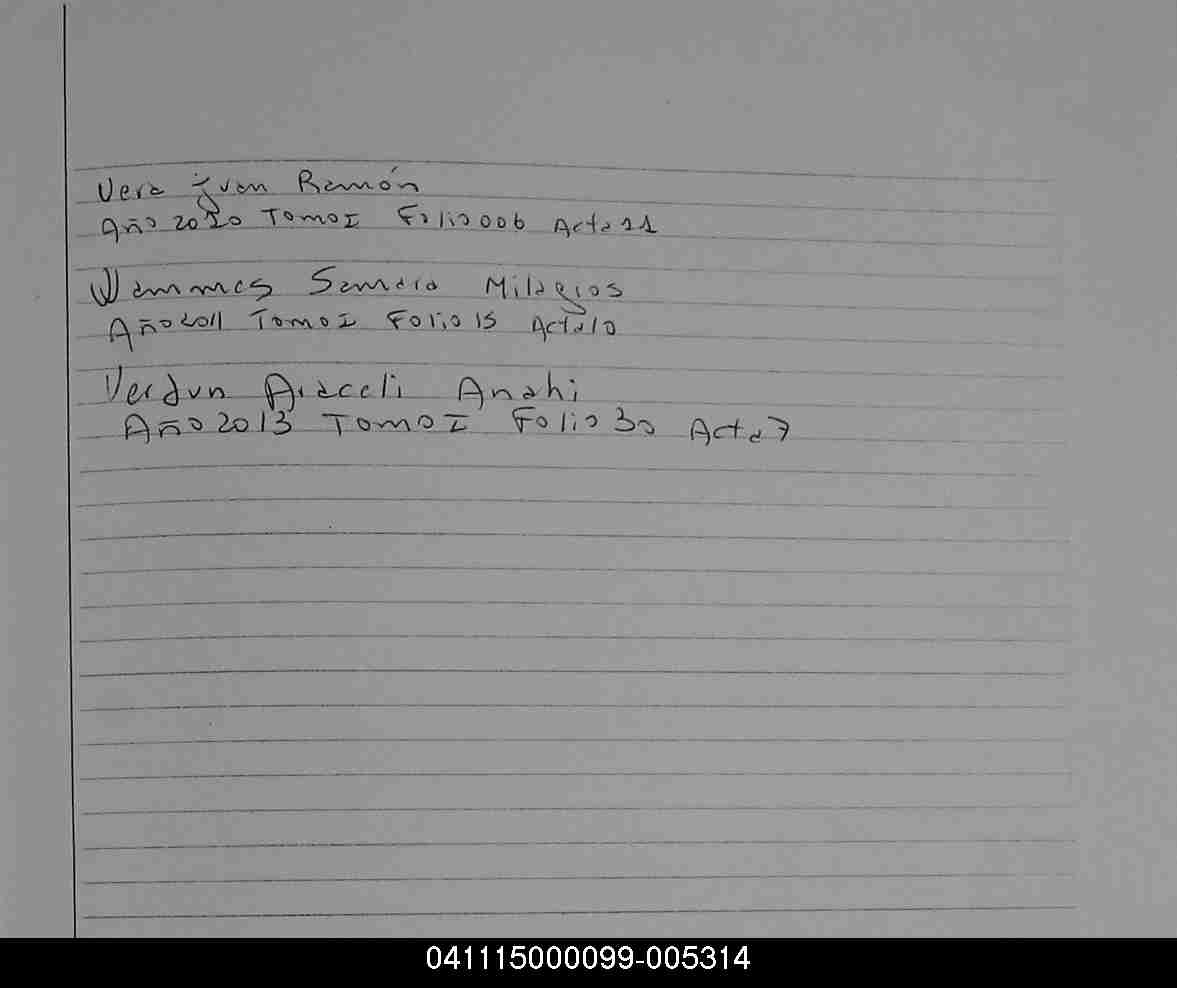 Vera Juan Ramón
Año 2010 Tomo I Folio 006 Acta 11
Wammes Sandra Milagros
Año 2011 Tomo I Folio 15 Acta 10
Verdun Araceli Anahi
Año 2013 Tomo I Folio 30 Acta 7
041115000099-005314